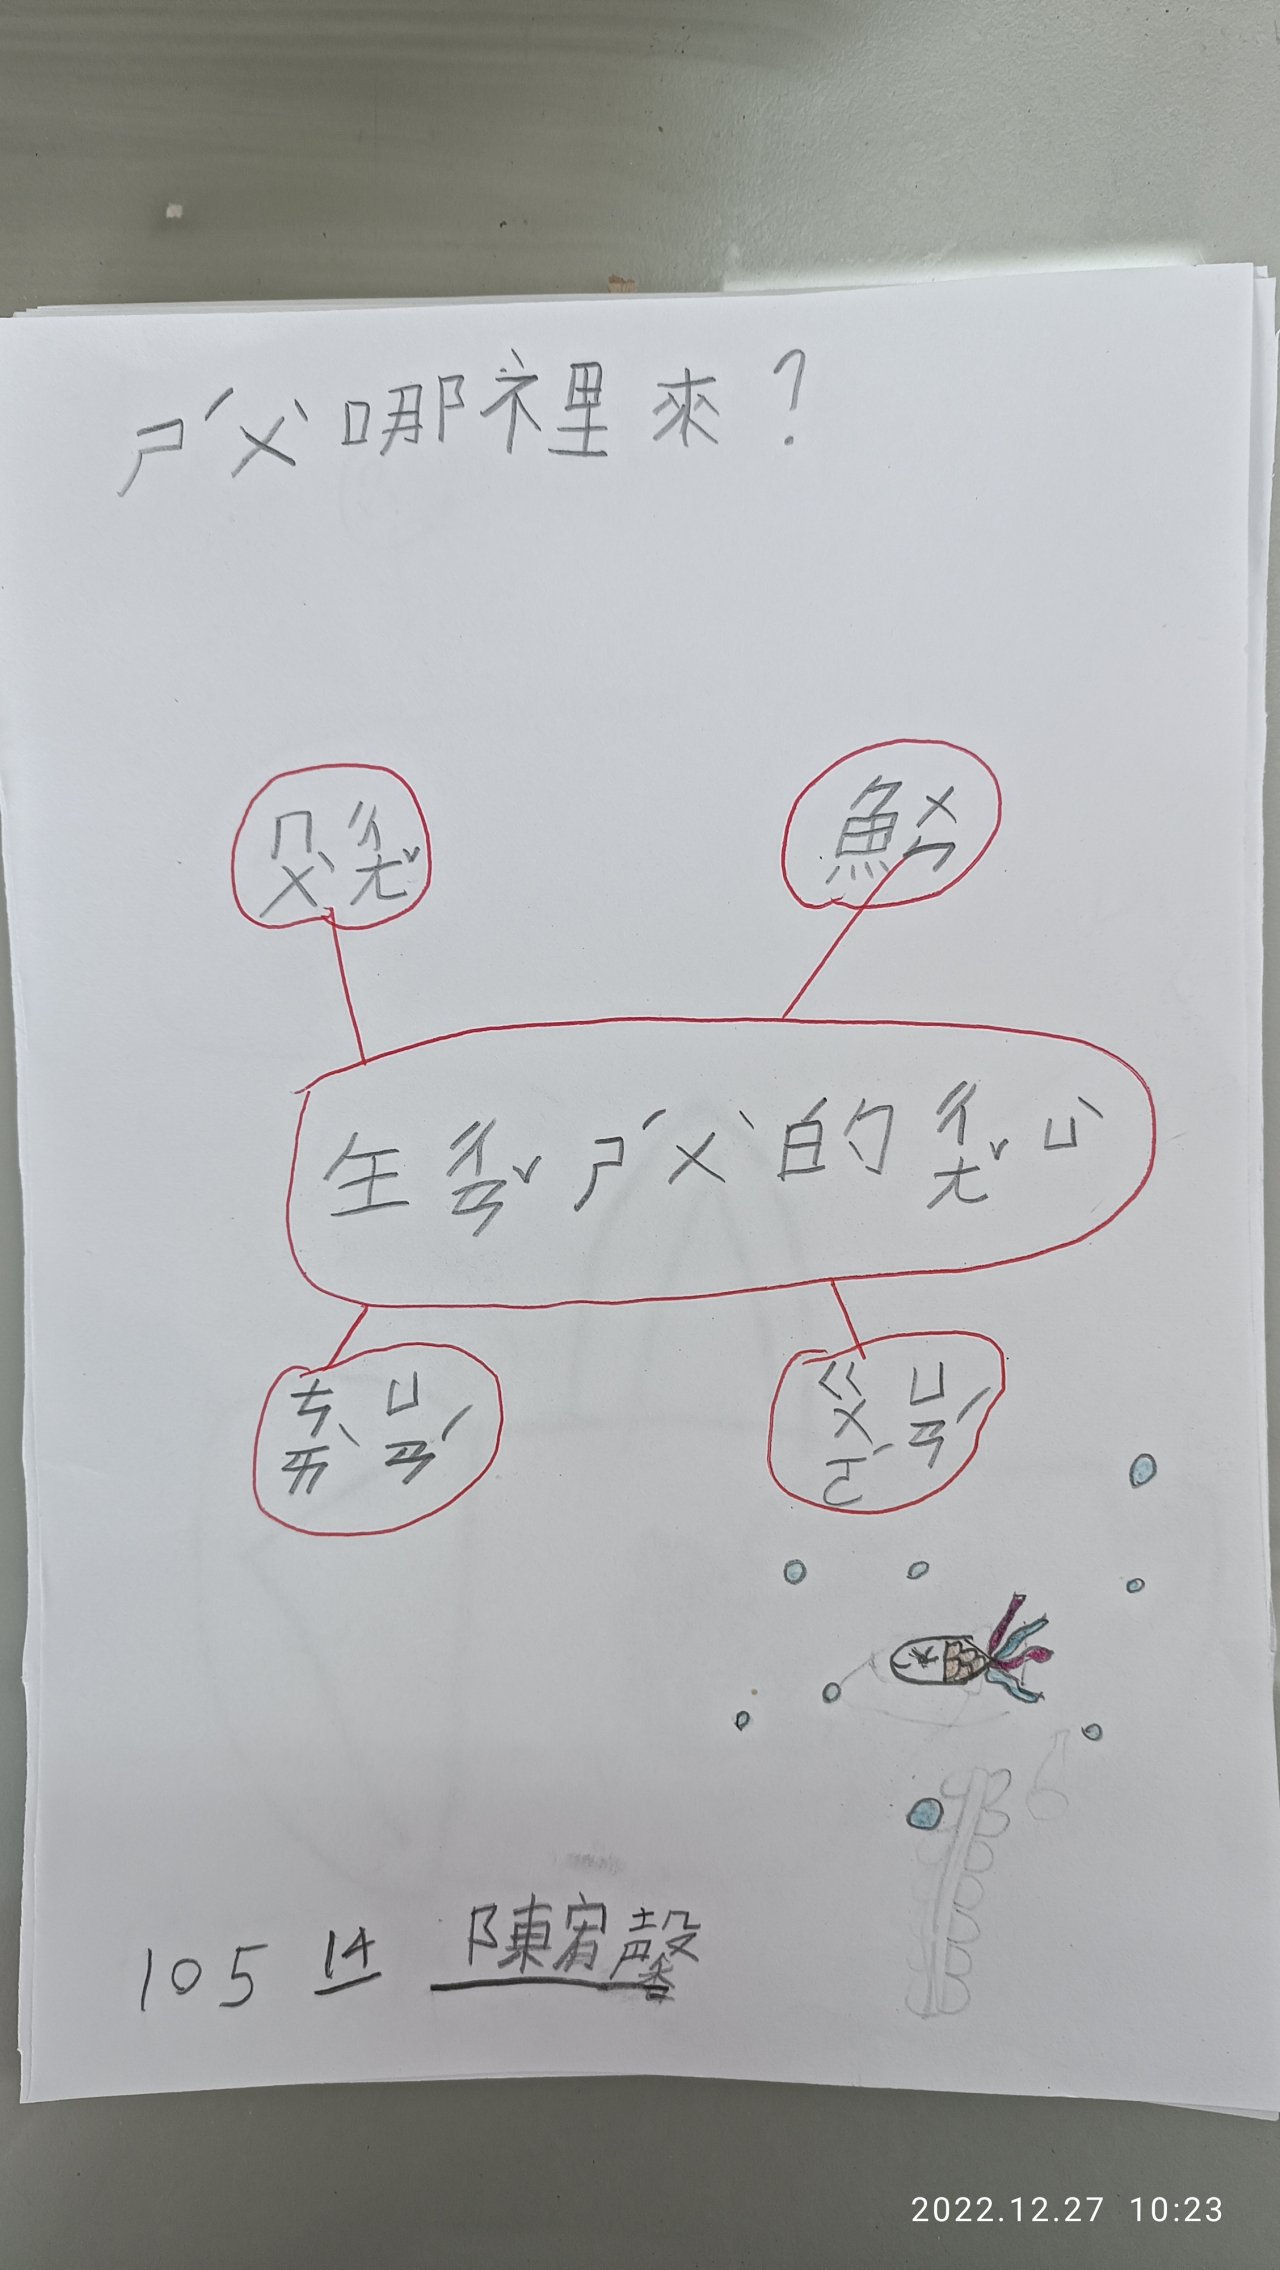 ㄕˊㄨˋ哪裡來?
ㄇㄨˋㄔㄤˇ 魚ㄨㄣ
生ㄔㄢˇㄕˊㄨˋ的ㄔㄤˇㄩˋ
ㄘㄞˋㄩㄢˊ ㄍㄨㄛˊㄩㄢˊ
105 14 陳宥馨
2022.12.27 10:23